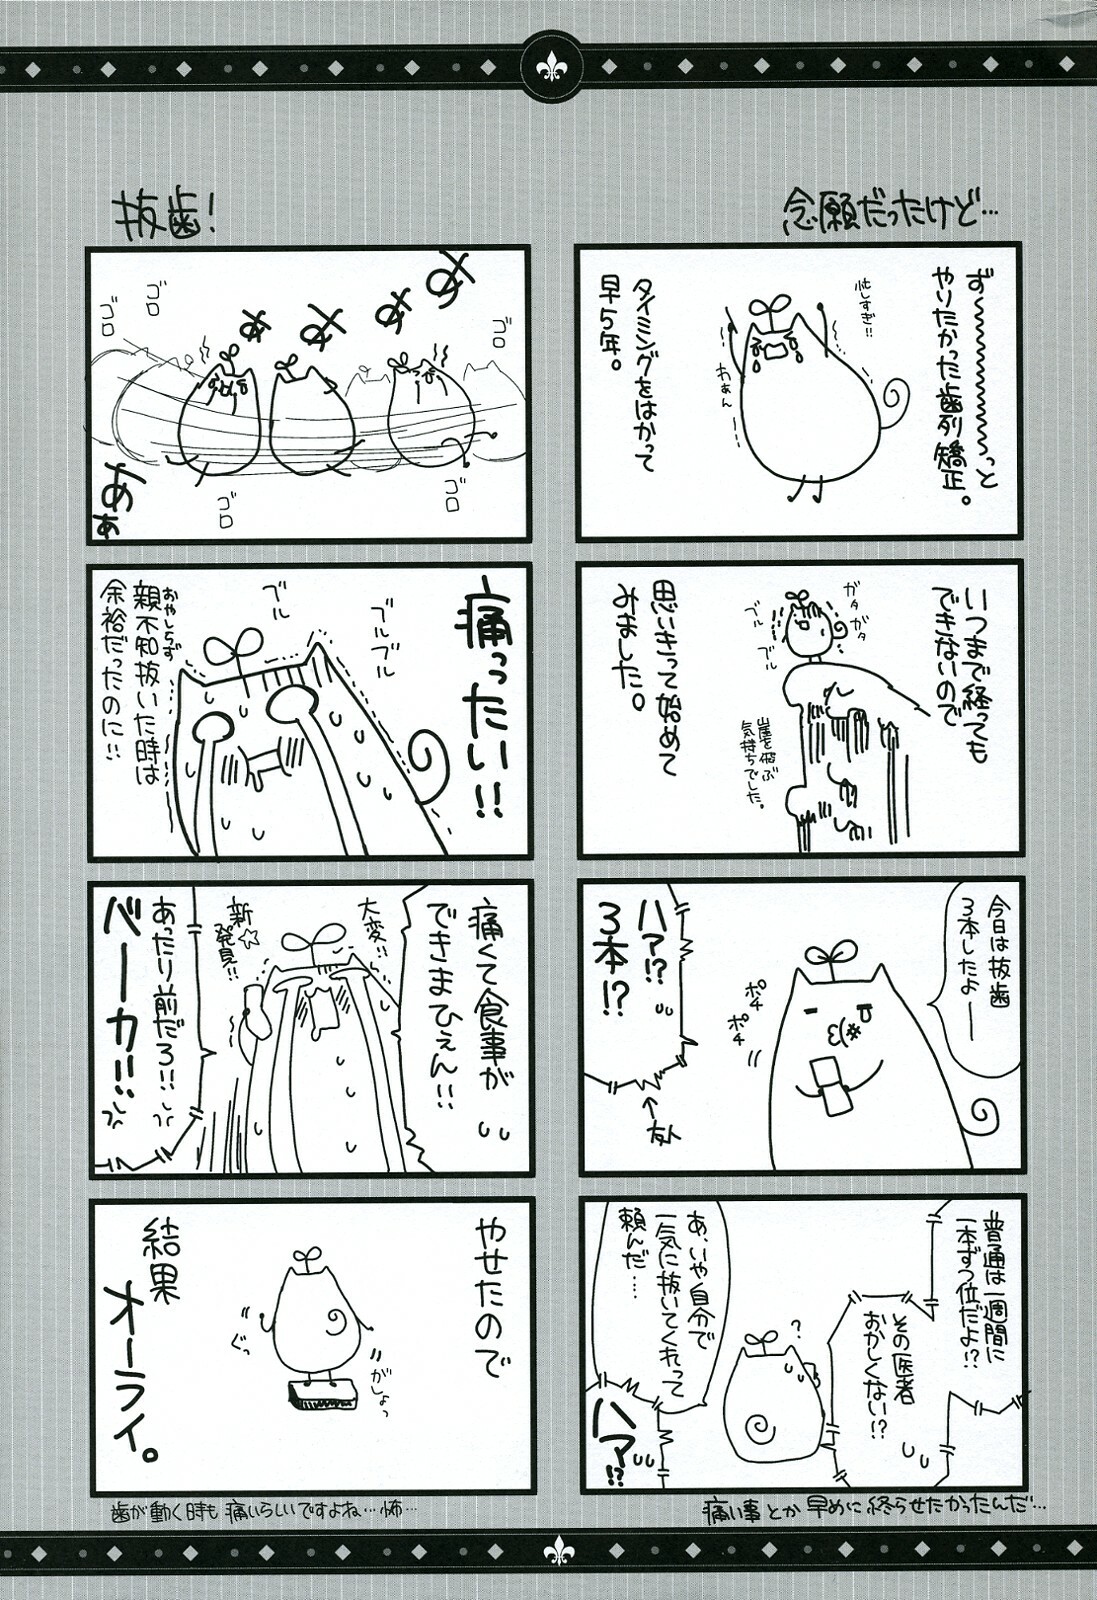 念願だったけど…
ず～～～～っと
やりたかった歯列矯正。
忙しすぎ!!
わぁん
タイミングをはかって
早5年。
いつまで経っても
できないので
ガタガタ
ブルブル
崖を飛ぶ
気持ちでした。
思いきって始めて
みました。
今日は抜歯
3本したよ――
ポチ
ポチ
ハァ!?
3本!?
←友人
普通は一週間に
一本ずつ位だよ!?
その医者
おかしくない!?
?
あ、いや自分で
一気に抜いてくれって
頼んだ……
ハァ!?
痛い事とか早めに終らせたかったんだ…
抜歯!
ああああ
ゴロ
ゴロ
ゴロ
ゴロ
ゴロ
ああ
痛ったい!!
ブル
ブルブル
親不知抜いた時は
おやしらず
余裕だったのに!!
痛くて食事が
できまひぇん!!
大変!!
新☆
発見!!
あったり前だろ!!
バーカ!!
やせたので
がしょっ
ぐっ
結果
オーライ。
歯が動く時も痛いらしいですよね…怖…